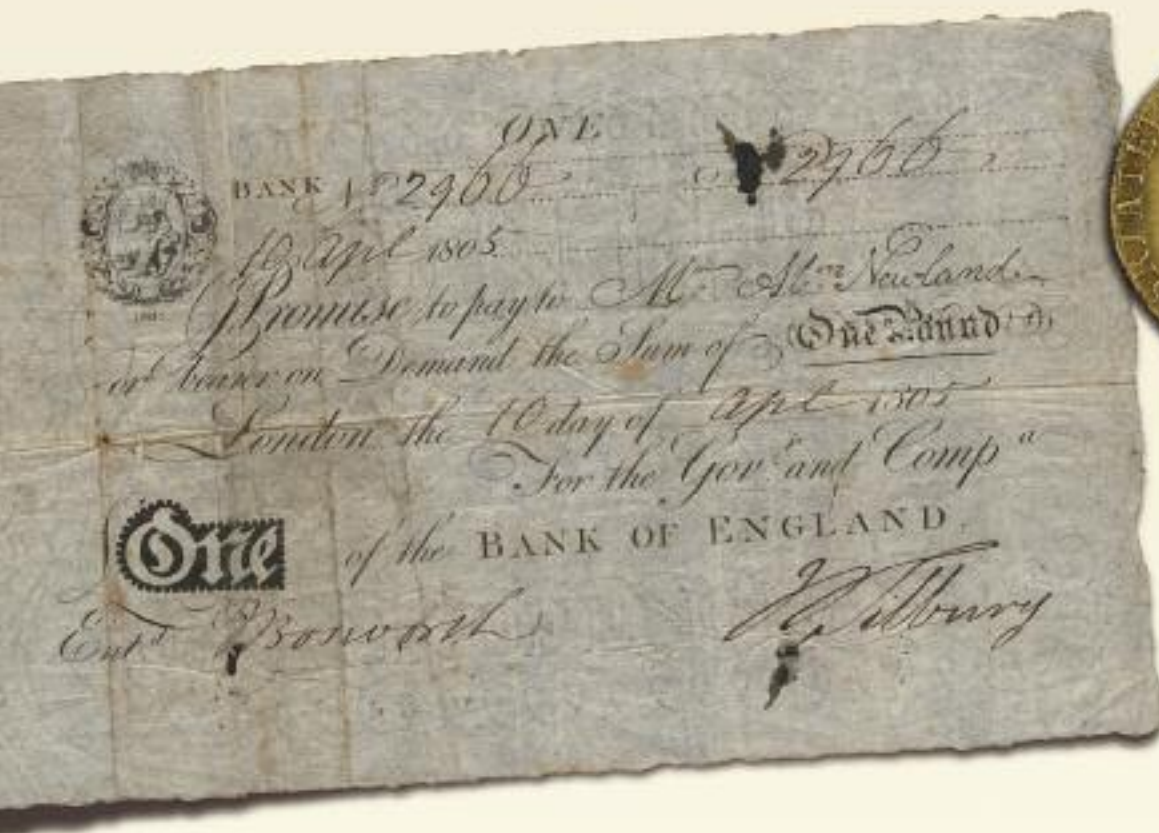 ONE
BANK No 2960 No 2960
10 Apl 1805
I Promise to pay to Mr. Abm. Newland
or bearer on Demand the Sum of One Pound
London the 10 day of Apl 1805
For the Govr. and Compa
of the BANK OF ENGLAND.
One
Entd Bosworth Tilbury